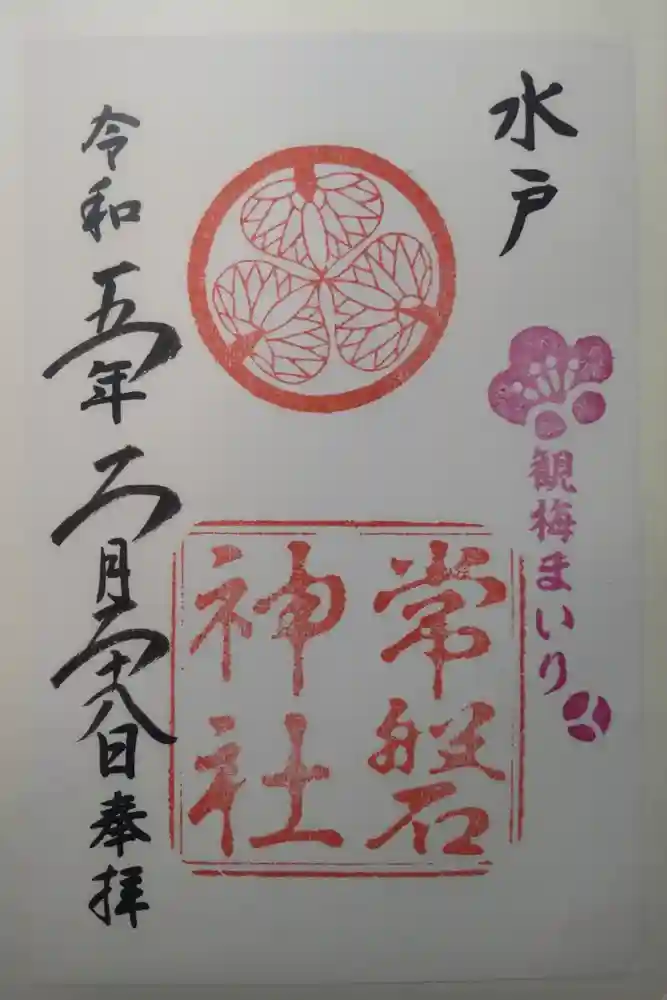 水戸
観梅まいり
常磐
神社
令和五年二月二十八日奉拝